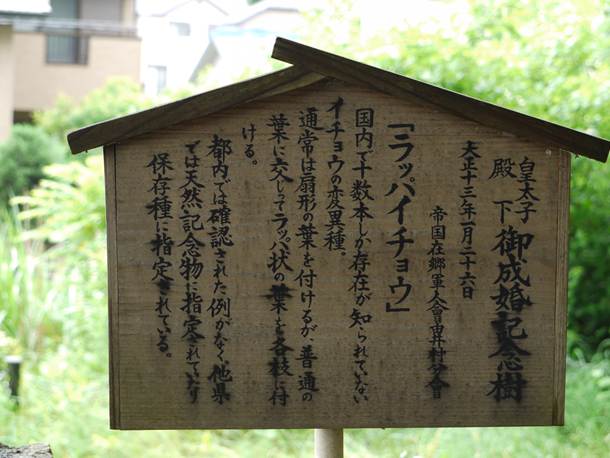 皇太子殿下御成婚記念樹
大正十三年一月二十六日
帝国在郷軍人會井村分會
「ラッパイチョウ」
国内で十数本しか存在が知られていない
イチョウの変異種。
通常は扇形の葉を付けるが、普通の
葉に交じってラッパ状の葉を各枝に付
ける。
都内では確認された例がなく、他県
では天然記念物に指定されていたり
保存種に指定されている。